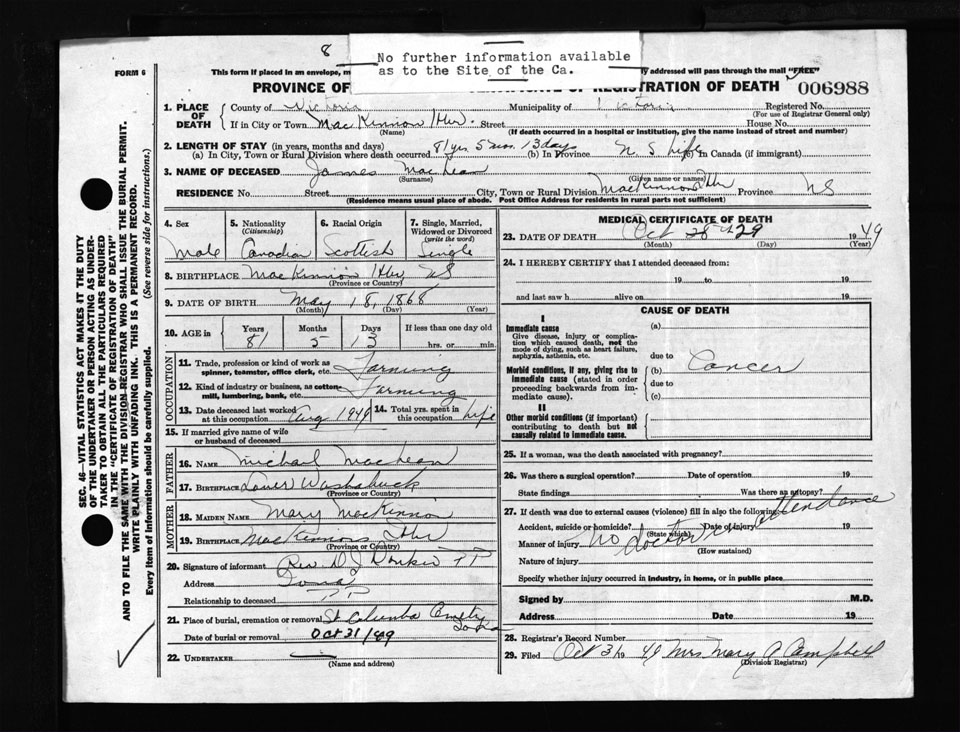 8
No further information available
as to the Site of the Ca.
FORM 6
This form if placed in an envelope, ma
ly addressed will pass through the mail "FREE"
PROVINCE OF
CERTIFICATE OF REGISTRATION OF DEATH
006988
1. PLACE OF DEATH
County of Victoria Municipality of Victoria Registered No.
(For use of Registrar General only)
If in City or Town MacKinnon Hbr. Street House No.
(Name) (If death occurred in a hospital or institution, give the name instead of street and number)
2. LENGTH OF STAY (in years, months and days)
(a) In City, Town or Rural Division where death occurred 81 yrs 5 mos. 13 days (b) in Province N S life (c) in Canada (if immigrant)
3. NAME OF DECEASED James MacLean
(Surname) (Given name or names)
RESIDENCE No. Street City, Town or Rural Division MacKinnons Hbr Province NS
(Residence means usual place of abode. Post Office Address for residents in rural parts not sufficient)
4. Sex
Male
5. Nationality
(Citizenship)
Canadian
6. Racial Origin
Scottish
7. Single, Married, Widowed or Divorced
(write the word)
Single
8. BIRTHPLACE MacKinnon Hbr NS
(Province or Country)
9. DATE OF BIRTH May 18, 1868
(Month) (Day) (Year)
10. AGE in Years Months Days If less than one day old
81 5 13 hrs. or min.
OCCUPATION
11. Trade, profession or kind of work as spinner, teamster, office clerk, etc. Farming
12. Kind of industry or business, as cotten, lumbering, bank, etc. Farming
13. Date deceased last worked at this occupation Aug 1949
14. Total yrs. spent in this occupation life
15. If married give name of wife or husband of deceased
FATHER
16. NAME Michael MacLean
17. BIRTHPLACE Lower Washabuck
(Province or Country)
MOTHER
18. MAIDEN NAME Mary MacKinnon
19. BIRTHPLACE MacKinnons Hbr
(Province or Country)
20. Signature of informant Rev. D J PP
Address Iona
Relationship to deceased PP
21. Place of burial, cremation or removal St Columba Iona
Date of burial or removal Oct 31/49
22. UNDERTAKER
(Name and address)
MEDICAL CERTIFICATE OF DEATH
23. DATE OF DEATH Oct 29 1949
(Month) (Day) (Year)
24. I HEREBY CERTIFY that I attended deceased from:
19 to 19
and last saw h alive on 19
CAUSE OF DEATH
I
Immediate cause (a)
Give disease, injury or complication which caused death, not the mode of dying, such as heart failure, asphyxia, asthenia, etc.
due to
Morbid conditions, if any, giving rise to immediate cause (stated in order proceeding backwards from immediate cause).
(b) Cancer
due to
(c)
II
Other morbid conditions (if important) contributing to death but not causally related to immediate cause.
25. If a woman, was the death associated with pregnancy?
26. Was there a surgical operation? Date of operation 19
State findings Was there an autopsy?
27. If death was due to external causes (violence) fill in also the following:
Accident, suicide or homicide? Date of injury 19
(State which)
Manner of injury
(How sustained)
No doctor in attendance
Nature of injury
Specify whether injury occurred in industry, in home, or in public place
Signed by M.D.
Address Date 19
28. Registrar's Record Number
29. Filed Oct 31 1949 Mrs. Mary A Campbell
(Division Registrar)
SEC. 46—VITAL STATISTICS ACT MAKES IT THE DUTY
OF THE UNDERTAKER OR PERSON ACTING AS UNDER-
TAKER TO OBTAIN ALL THE PARTICULARS REQUIRED
IN THE "CERTIFICATE OF REGISTRATION OF DEATH"
AND TO FILE THE SAME WITH THE DIVISION REGISTRAR WHO SHALL ISSUE THE BURIAL PERMIT.
WRITE PLAINLY WITH UNFADING INK. THIS IS A PERMANENT RECORD.
Every item of information should be carefully supplied. (See reverse side for instructions.)